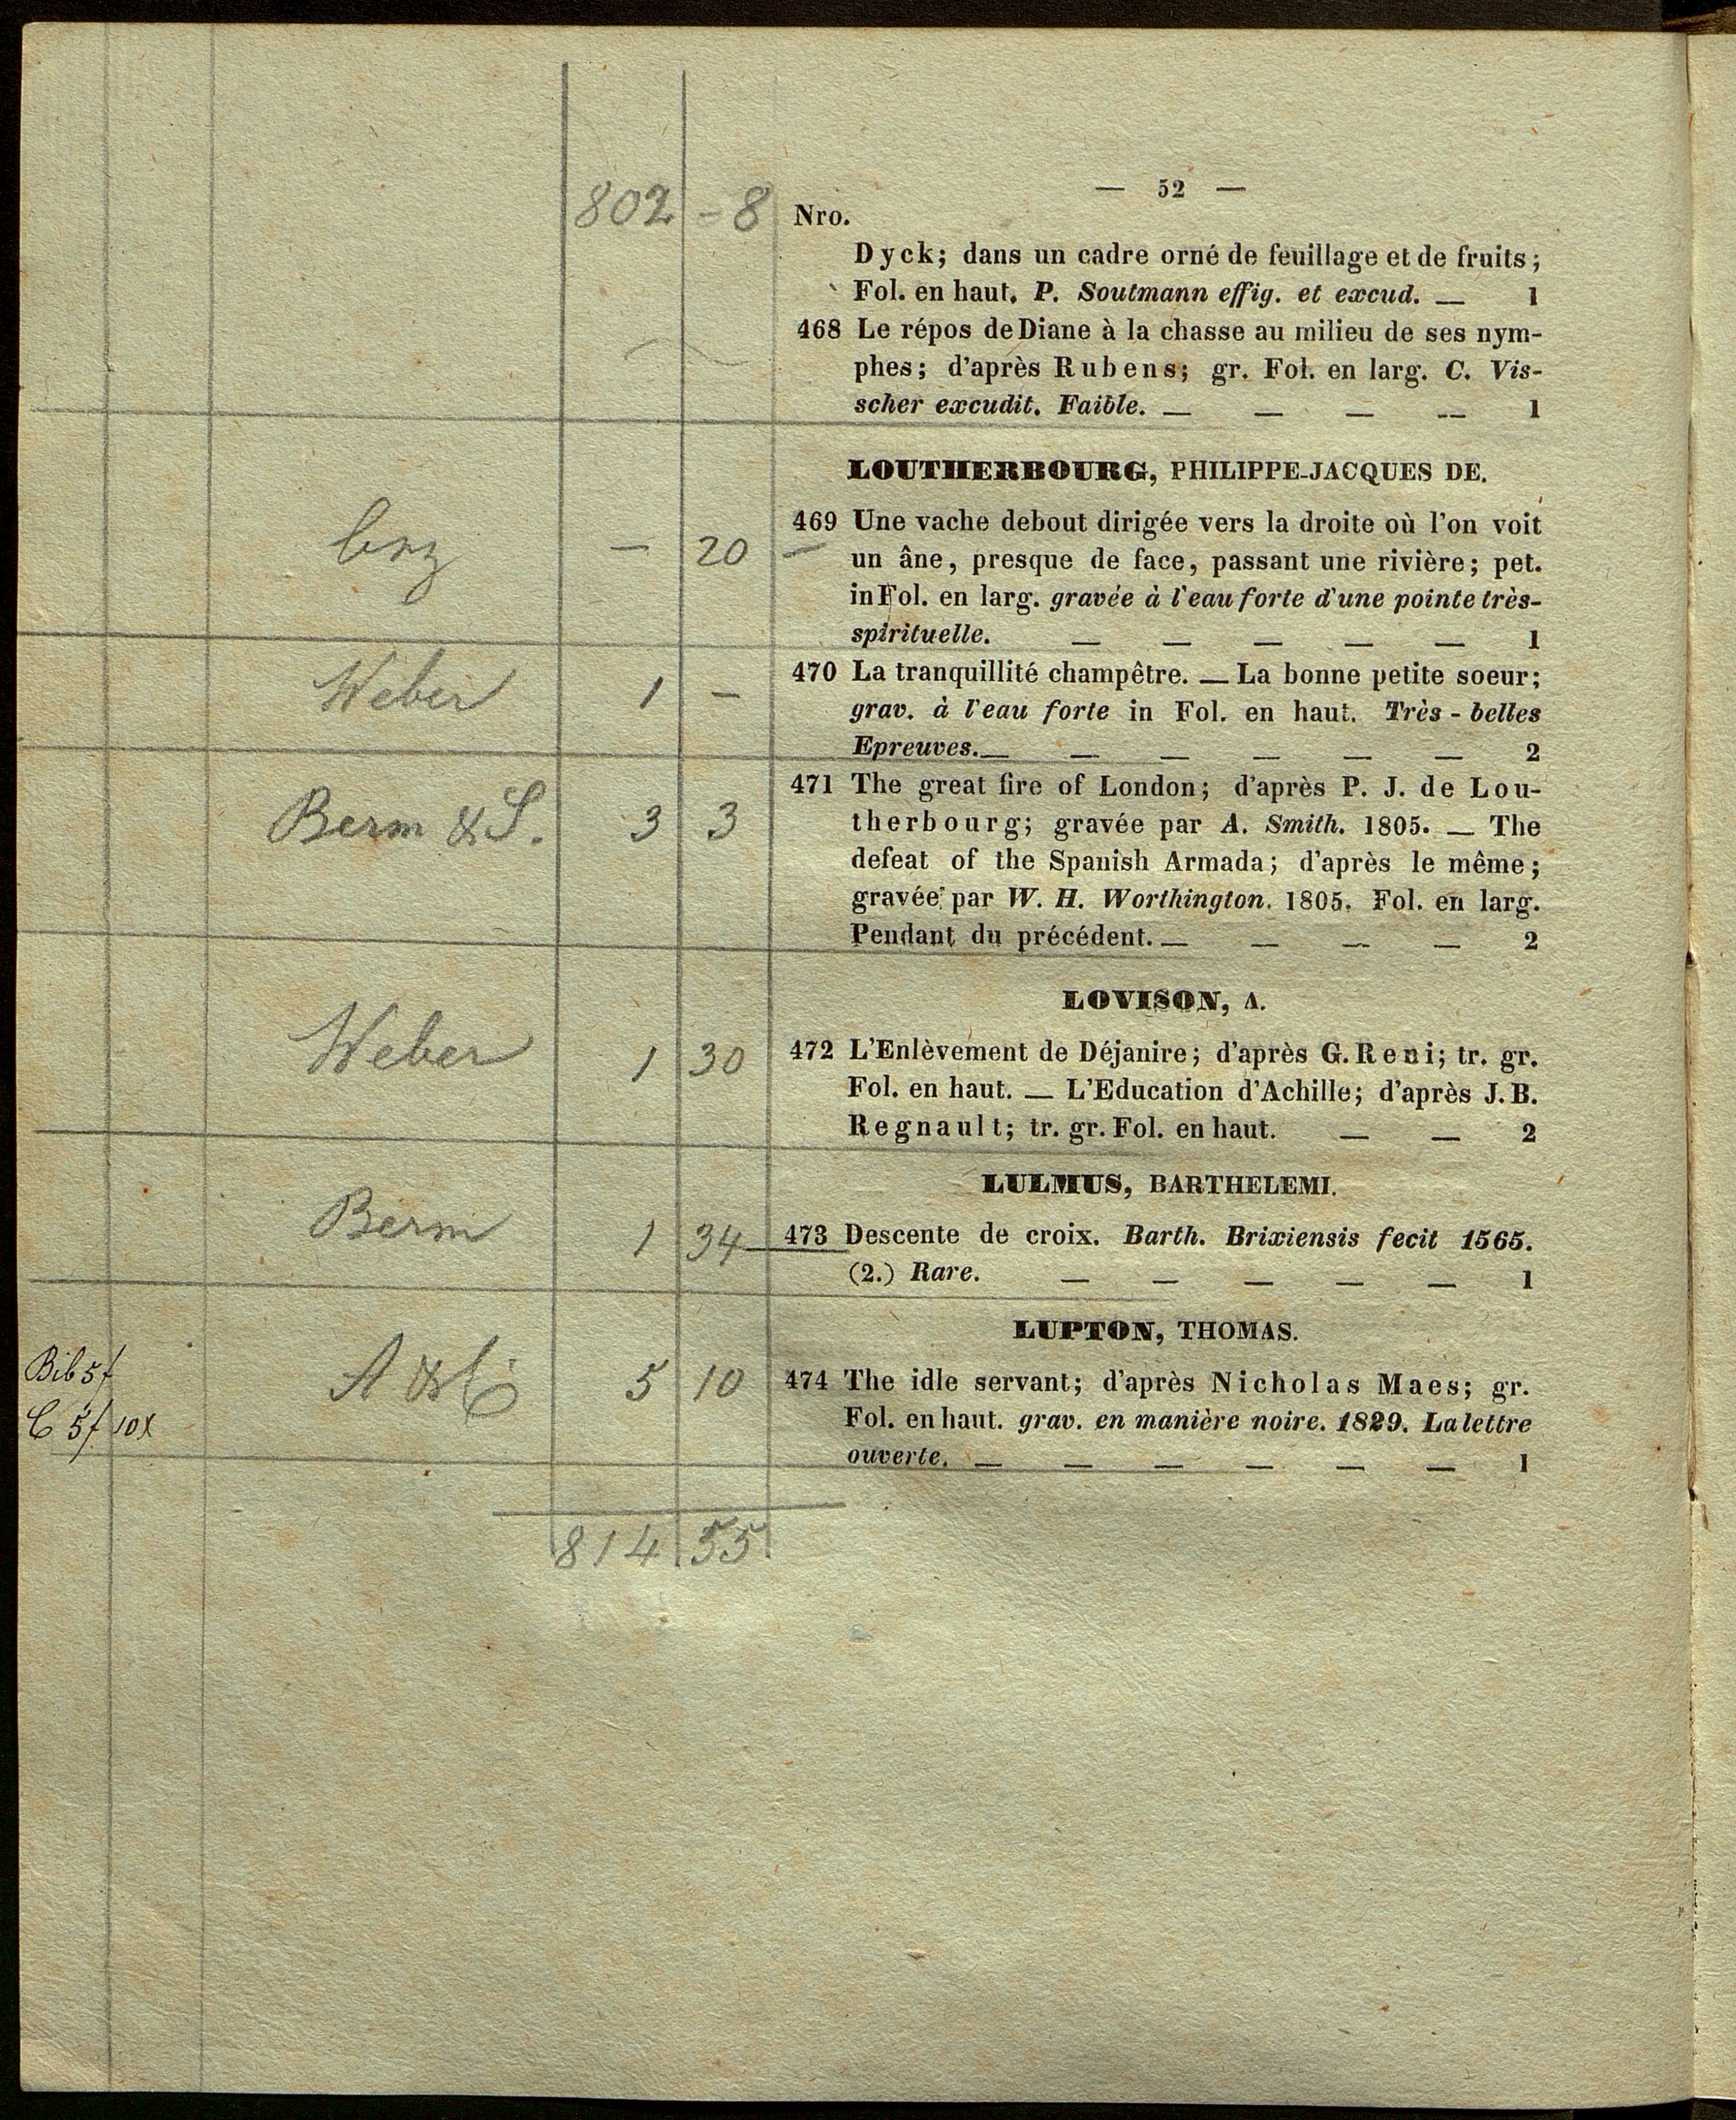 — 52 —
802 - 8 Nro.
Dyck; dans un cadre orné de feuillage et de fruits;
Fol. en haut. P. Soutmann effig. et excud. — 1
468 Le répos de Diane à la chasse au milieu de ses nym-
phes; d'après Rubens; gr. Fol. en larg. C. Vis-
scher excudit. Faible. — — — — 1
LOUTHERBOURG, PHILIPPE-JACQUES DE.
469 Une vache debout dirigée vers la droite où l'on voit
— 20 — un âne, presque de face, passant une rivière; pet.
in Fol. en larg. gravée à l'eau forte d'une pointe très-
spirituelle. — — — — — 1
Weber 1 — 470 La tranquillité champêtre. — La bonne petite soeur;
grav. à l'eau forte in Fol. en haut. Très-belles
Epreuves. — — — — — — 2
471 The great fire of London; d'après P. J. de Lou-
Berm & S. 3 3 therbourg; gravée par A. Smith. 1805. — The
defeat of the Spanish Armada; d'après le même;
gravée par W. H. Worthington. 1805. Fol. en larg.
Pendant du précédent. — — — — 2
LOVISON, A.
Weber 1 30 472 L'Enlèvement de Déjanire; d'après G. Reni; tr. gr.
Fol. en haut. — L'Education d'Achille; d'après J. B.
Regnault; tr. gr. Fol. en haut. — — 2
LULMUS, BARTHELEMI.
Berm 1 34 473 Descente de croix. Barth. Brixiensis fecit 1565.
(2.) Rare. — — — — — 1
LUPTON, THOMAS.
Bib 5f 5 10 474 The idle servant; d'après Nicholas Maes; gr.
C 5f 10x Fol. en haut. grav. en manière noire. 1829. La lettre
ouverte. — — — — — — 1
814 55